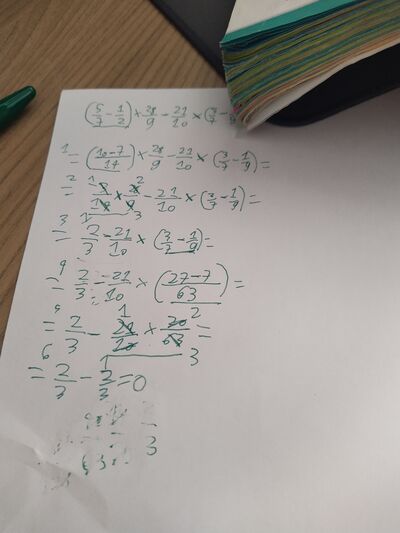 (5/7 - 1/2) × 28/9 - 21/10 × (3/7 -
1 = (10-7/14) × 28/9 - 21/10 × (3/7 - 1/9) =
2 = 3/14 × 28/9 - 21/10 × (3/7 - 1/9) =
3 = 2/3 - 21/10 × (3/7 - 1/9) =
4 = 2/3 - 21/10 × (27-7/63) =
5 = 2/3 - 21/10 × 20/63 =
6 = 2/3 - 2/3 = 0